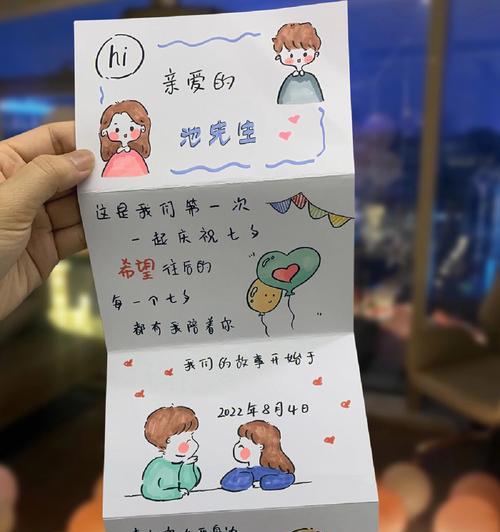 hi
亲爱的
池先生
这是我们第一次
一起庆祝七夕
希望往后的
每一个七夕
都有我陪着你
我们的故事开始于
2022年8月4日